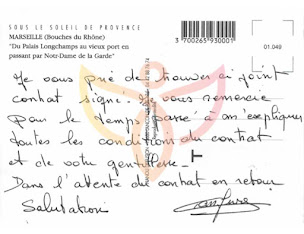 SOUS LE SOLEIL DE PROVENCE
MARSEILLE (Bouches du Rhône)
"Du Palais Longchamps au vieux port en
passant par Notr-Dame de la Garde"
3 700265 930001
01.049
Je vous prie de trouver ci joint
contrat signé. Je vous remercie
pour le temps passé à m'expliquer
toutes les conditions du contrat
et de votre gentillesse.
Dans l'attente du contrat en retour
Salutations